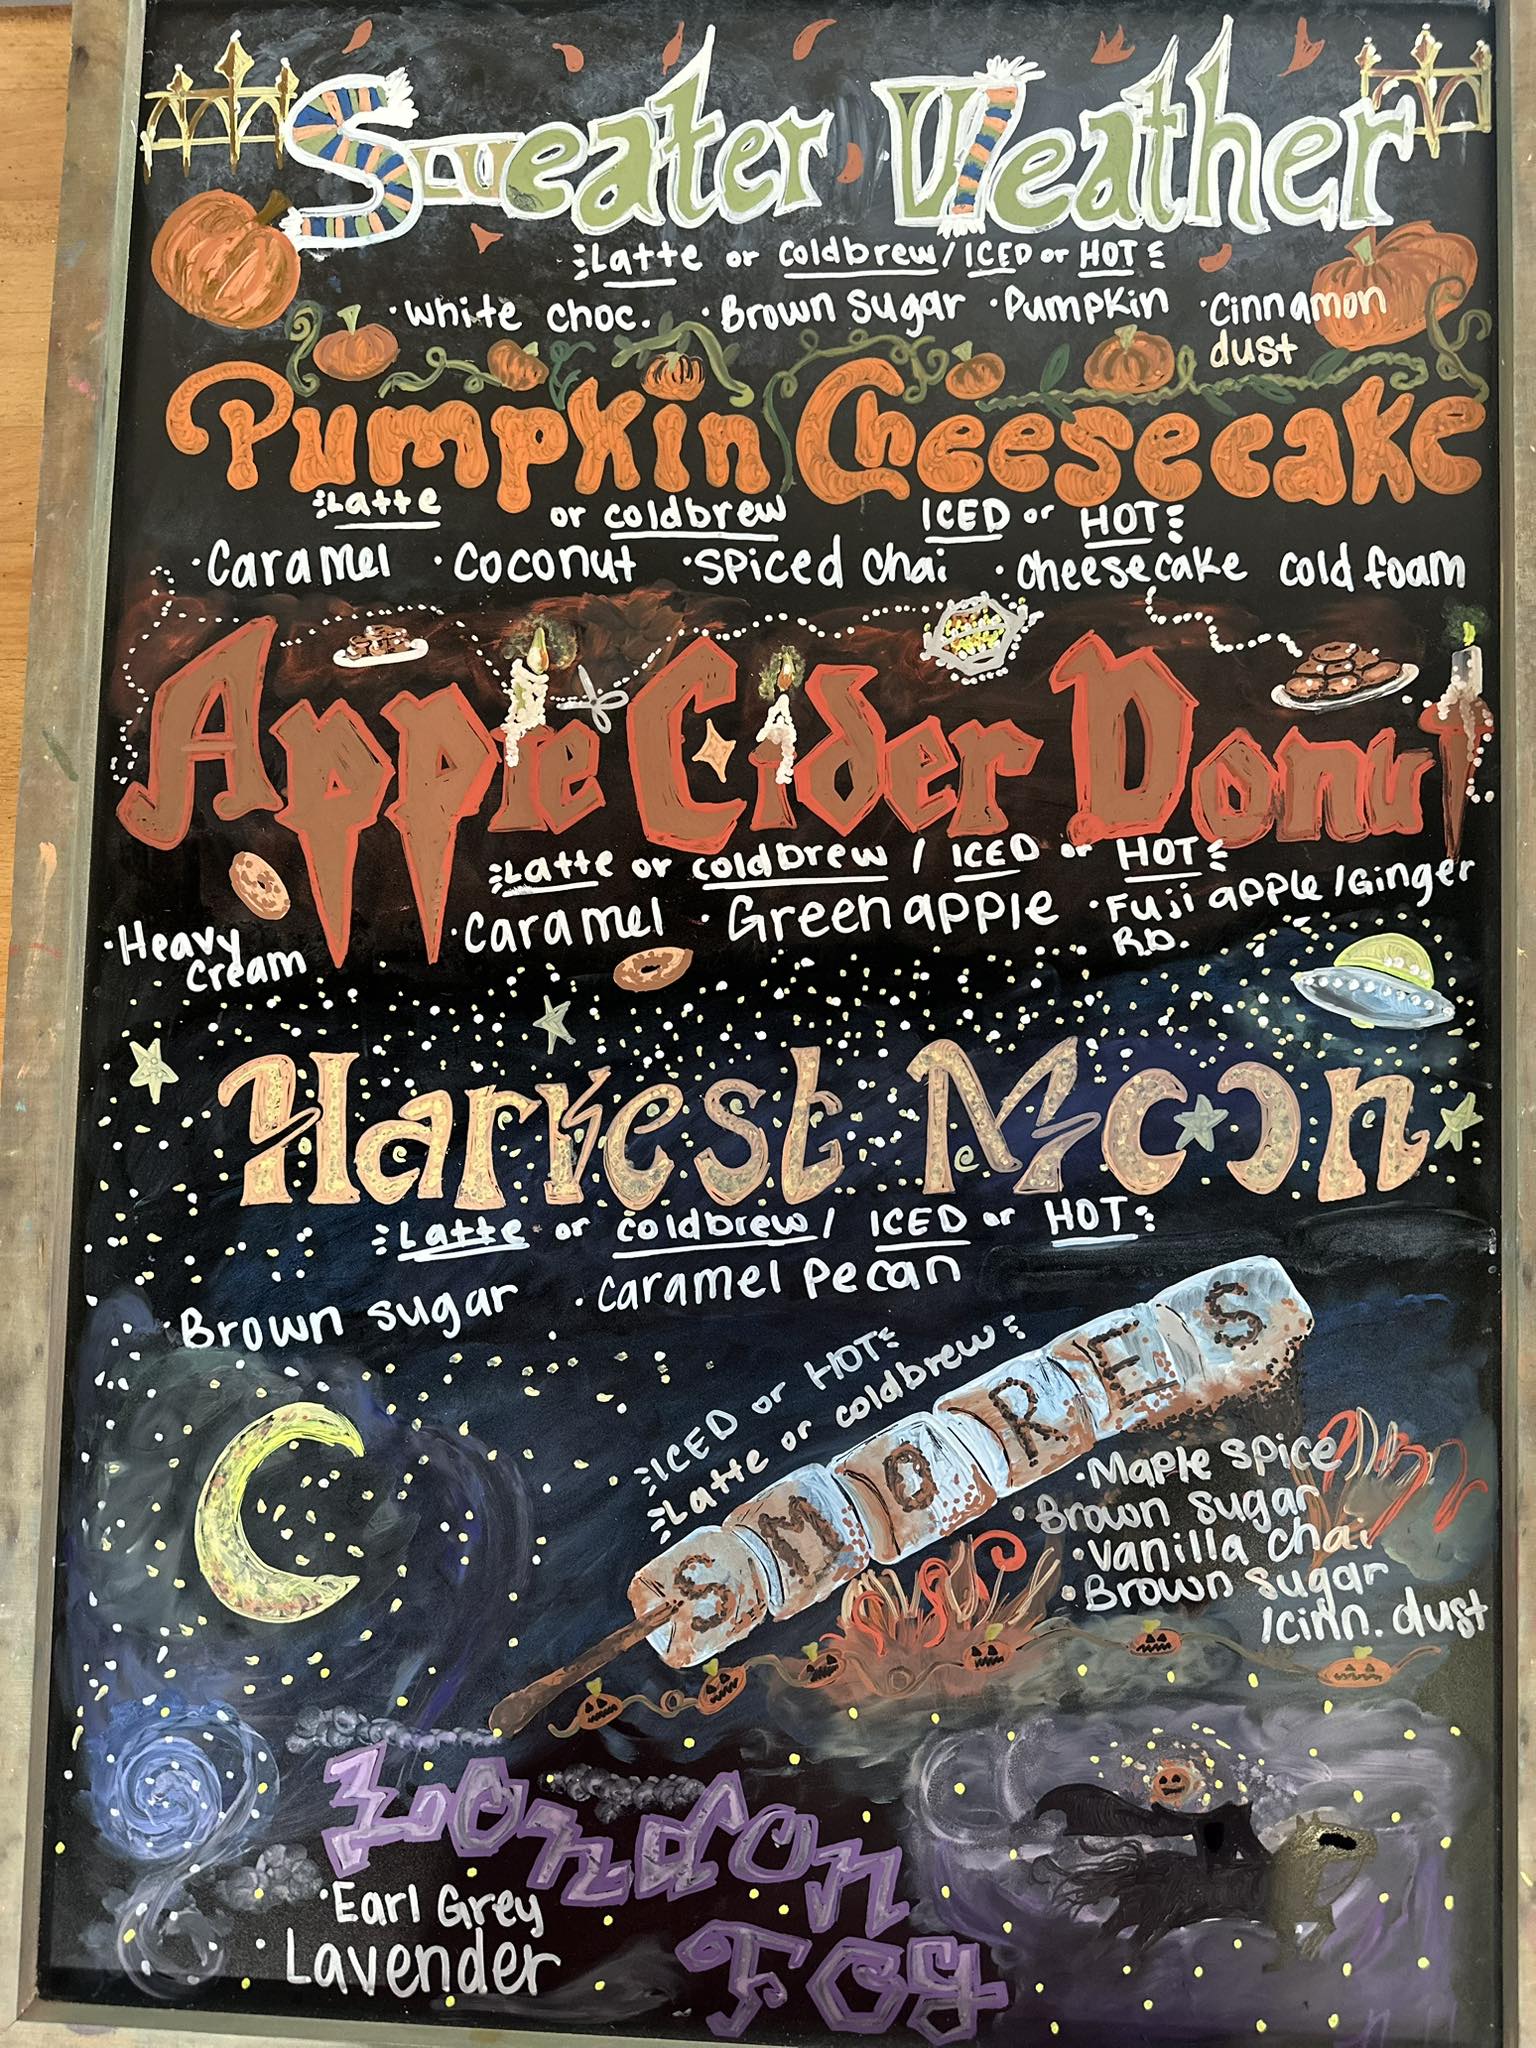 Sweater Weather
Latte or coldbrew / ICED or HOT
· white choc. · Brown sugar · Pumpkin · cinnamon
dust
Pumpkin Cheesecake
Latte or coldbrew ICED or HOT
· caramel · coconut · spiced chai · cheesecake cold foam
Apple Cider Donut
Latte or coldbrew / ICED or HOT
· Heavy
cream
· caramel · Green apple · Fuji apple / Ginger
Rb.
Harvest Moon
Latte or coldbrew / ICED or HOT
· Brown sugar · caramel pecan
ICED or HOT
Latte or coldbrew
SMORES
· Maple spice
· Brown sugar
· vanilla chai
· Brown sugar
/cinn. dust
London
Fog
· Earl Grey
· Lavender